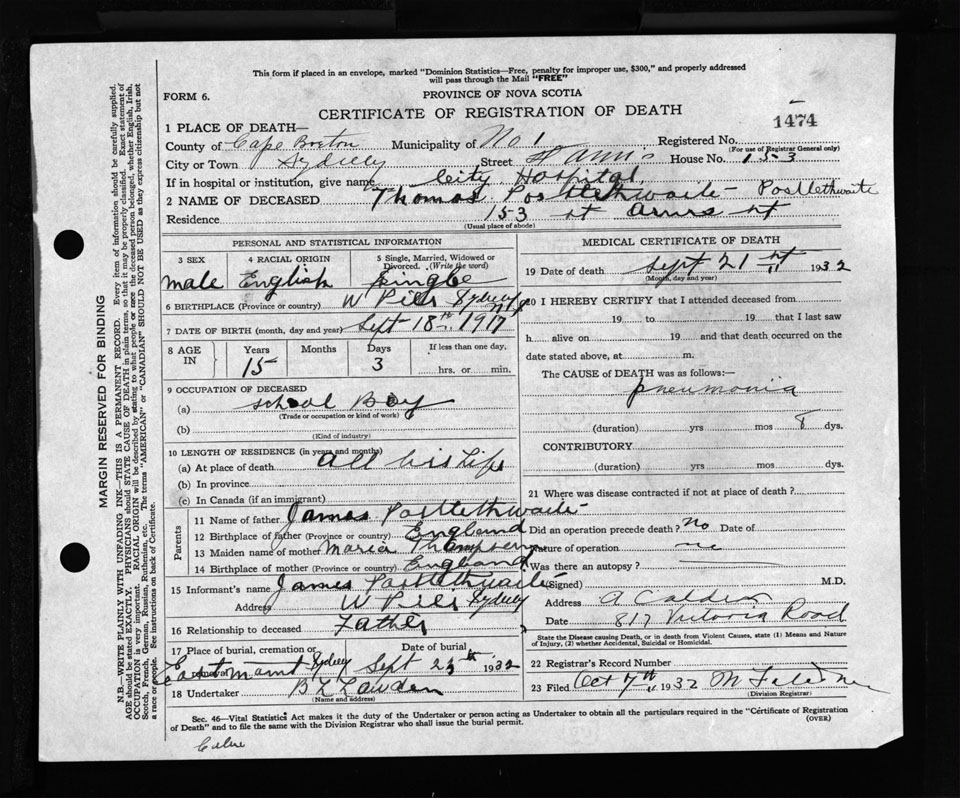 This form if placed in an envelope, marked "Dominion Statistics—Free, penalty for improper use, $300," and properly addressed
will pass through the Mail "FREE"
FORM 6.
PROVINCE OF NOVA SCOTIA
CERTIFICATE OF REGISTRATION OF DEATH
1474
1 PLACE OF DEATH—
County of Cape Breton Municipality of No 1 Registered No.
(For use of Registrar General only)
City or Town Sydney Street St Anns House No. 153
If in hospital or institution, give name City Hospital
2 NAME OF DECEASED Thomas Postlethwaite Postlethwaite
Residence 153 st Anns st
(Usual place of abode)
PERSONAL AND STATISTICAL INFORMATION
3 SEX 4 RACIAL ORIGIN 5 Single, Married, Widowed or
Divorced. (Write the word)
male English single
6 BIRTHPLACE (Province or country) W Pier Sydney NS
7 DATE OF BIRTH (month, day and year) Sept 18th 1917
8 AGE IN Years Months Days If less than one day,
15 3 hrs. or min.
9 OCCUPATION OF DECEASED
(a) school Boy
(Trade or occupation or kind of work)
(b)
(Kind of industry)
10 LENGTH OF RESIDENCE (in years and months)
(a) At place of death all his Life
(b) In province
(c) In Canada (if an immigrant)
Parents
11 Name of father James Postlethwaite
12 Birthplace of father (Province or country) England
13 Maiden name of mother Maria
14 Birthplace of mother (Province or country) England
15 Informant's name James Postlethwaite
Address W Pier Sydney
16 Relationship to deceased Father
17 Place of burial, cremation or Date of burial
Sydney Sept 23th 1932
18 Undertaker
(Name and address)
MEDICAL CERTIFICATE OF DEATH
19 Date of death Sept 21st 1932
(Month, day and year)
20 I HEREBY CERTIFY that I attended deceased from
19 to 19 that I last saw
h alive on 19 and that death occurred on the
date stated above, at m.
The CAUSE of DEATH was as follows:—
pneumonia
(duration) yrs mos 8 dys.
CONTRIBUTORY
(duration) yrs. mos. dys.
21 Where was disease contracted if not at place of death?
Did an operation precede death? no Date of
Nature of operation
Was there an autopsy?
(Signed) M.D.
Address
Date 817 Victoria Road
State the Disease causing Death, or in death from Violent Causes, state (1) Means and Nature
of Injury, (2) whether Accidental, Suicidal or Homicidal.
22 Registrar's Record Number
23 Filed Oct 7th 1932
(Division Registrar)
Sec. 46—Vital Statistics Act makes it the duty of the Undertaker or person acting as Undertaker to obtain all the particulars required in the "Certificate of Registration
of Death" and to file the same with the Division Registrar who shall issue the burial permit.
(OVER)
MARGIN RESERVED FOR BINDING
N.B.—WRITE PLAINLY WITH UNFADING INK—THIS IS A PERMANENT RECORD. Every item of information should be carefully supplied.
AGE should be stated EXACTLY. PHYSICIANS should STATE CAUSE OF DEATH in plain terms, so that it may be properly classified. Exact statement of
OCCUPATION is very important. RACIAL ORIGIN will be described by stating to what people or race the deceased person belonged, whether English, Irish,
Scotch, French, German, Russian, Ruthenian, etc. The terms "AMERICAN" or "CANADIAN" SHOULD NOT BE USED as they express citizenship but not
a race or people. See instructions on back of Certificate.